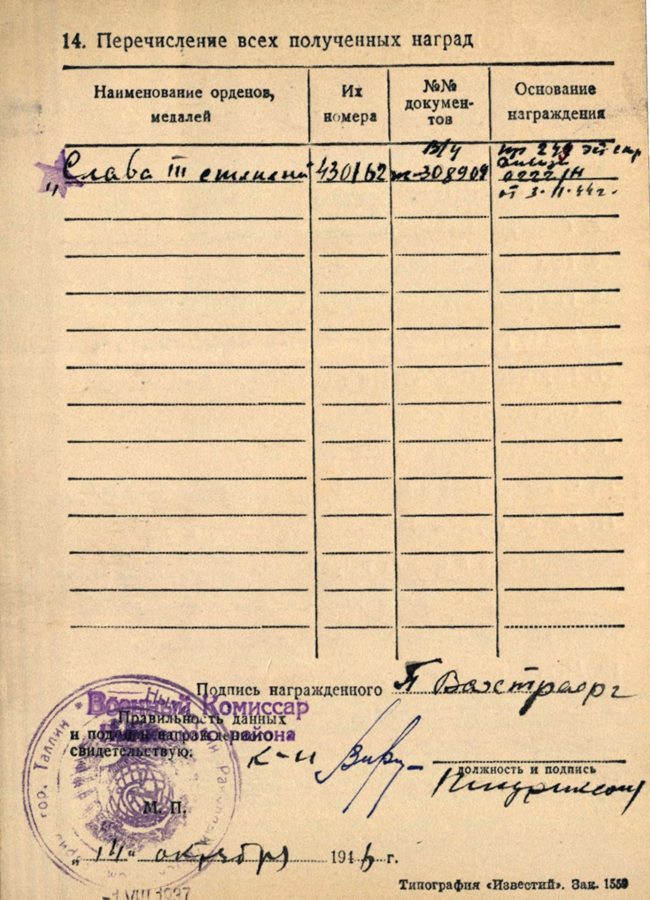 14. Перечисление всех полученных наград
Наименование орденов, медалей
Их номера
№№ докумен-тов
Основание награждения
„Слава III степени" 430162
в/ч
т-308909
пр 249
0222/н
от 3.11.44г.
Подпись награжденного П Вахстраорг
Военный Комиссар
Правильность данных
и подписи награжденного
района
свидетельствую:
к-н
должность и подпись
гор. Таллин
М. П.
„14" октября 1946 г.
Типография «Известий». Зак. 1559